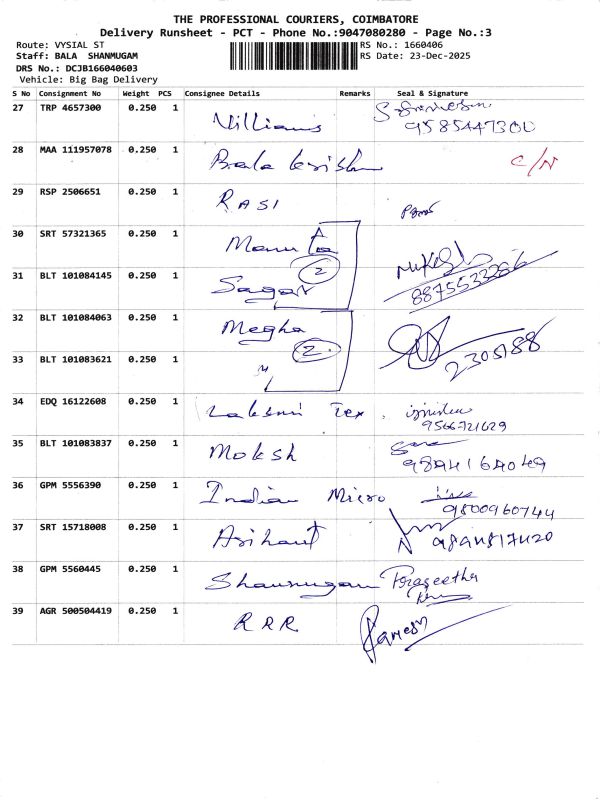 THE PROFESSIONAL COURIERS, COIMBATORE
Delivery Runsheet - PCT - Phone No.:9047080280 - Page No.:3
Route: VYSIAL ST RS No.: 1660406
Staff: BALA SHANMUGAM RS Date: 23-Dec-2025
DRS No.: DCJB166040603
Vehicle: Big Bag Delivery
S No Consignment No Weight PCS Consignee Details Remarks Seal & Signature
27 TRP 4657300 0.250 1 Williams
28 MAA 111957078 0.250 1 Bala Krishn C/N
29 RSP 2506651 0.250 1 RASI
30 SRT 57321365 0.250 1
31 BLT 101084145 0.250 1 Sagar 2 8875533266
32 BLT 101084063 0.250 1 Megha
33 BLT 101083621 0.250 1 " 2 2305188
34 EDQ 16122608 0.250 1 Laksmi Tex.
9566721629
35 BLT 101083837 0.250 1 Moksh
9894164049
36 GPM 5556390 0.250 1 Indian Micro
9800960744
37 SRT 15718008 0.250 1 Arihant
38 GPM 5560445 0.250 1 Shanmugam Prageetha
39 AGR 500504419 0.250 1 RRR Ramesh